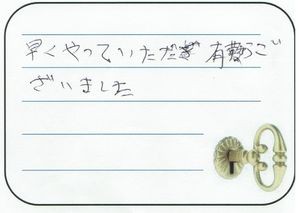 早くやっていただき 有難うご
ざいました